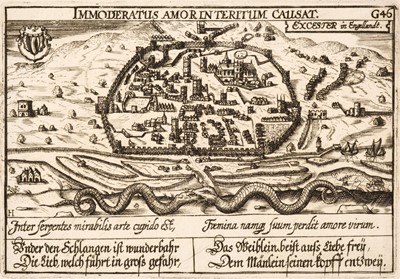 IMMODERATUS AMOR INTERITUM CAUSAT.
G46
EXCESTER in Engellandt.
H
Inter serpentes mirabilis arte cupido est,
Fœmina namq suum perdit amore virum.
Vnder den Schlangen ist wunderbahr
Die Lieb, welch führt in groß gefahr,
Das Weiblein beist auß Liebe freÿ
Dem Mänlein seinen kopff entzweÿ.